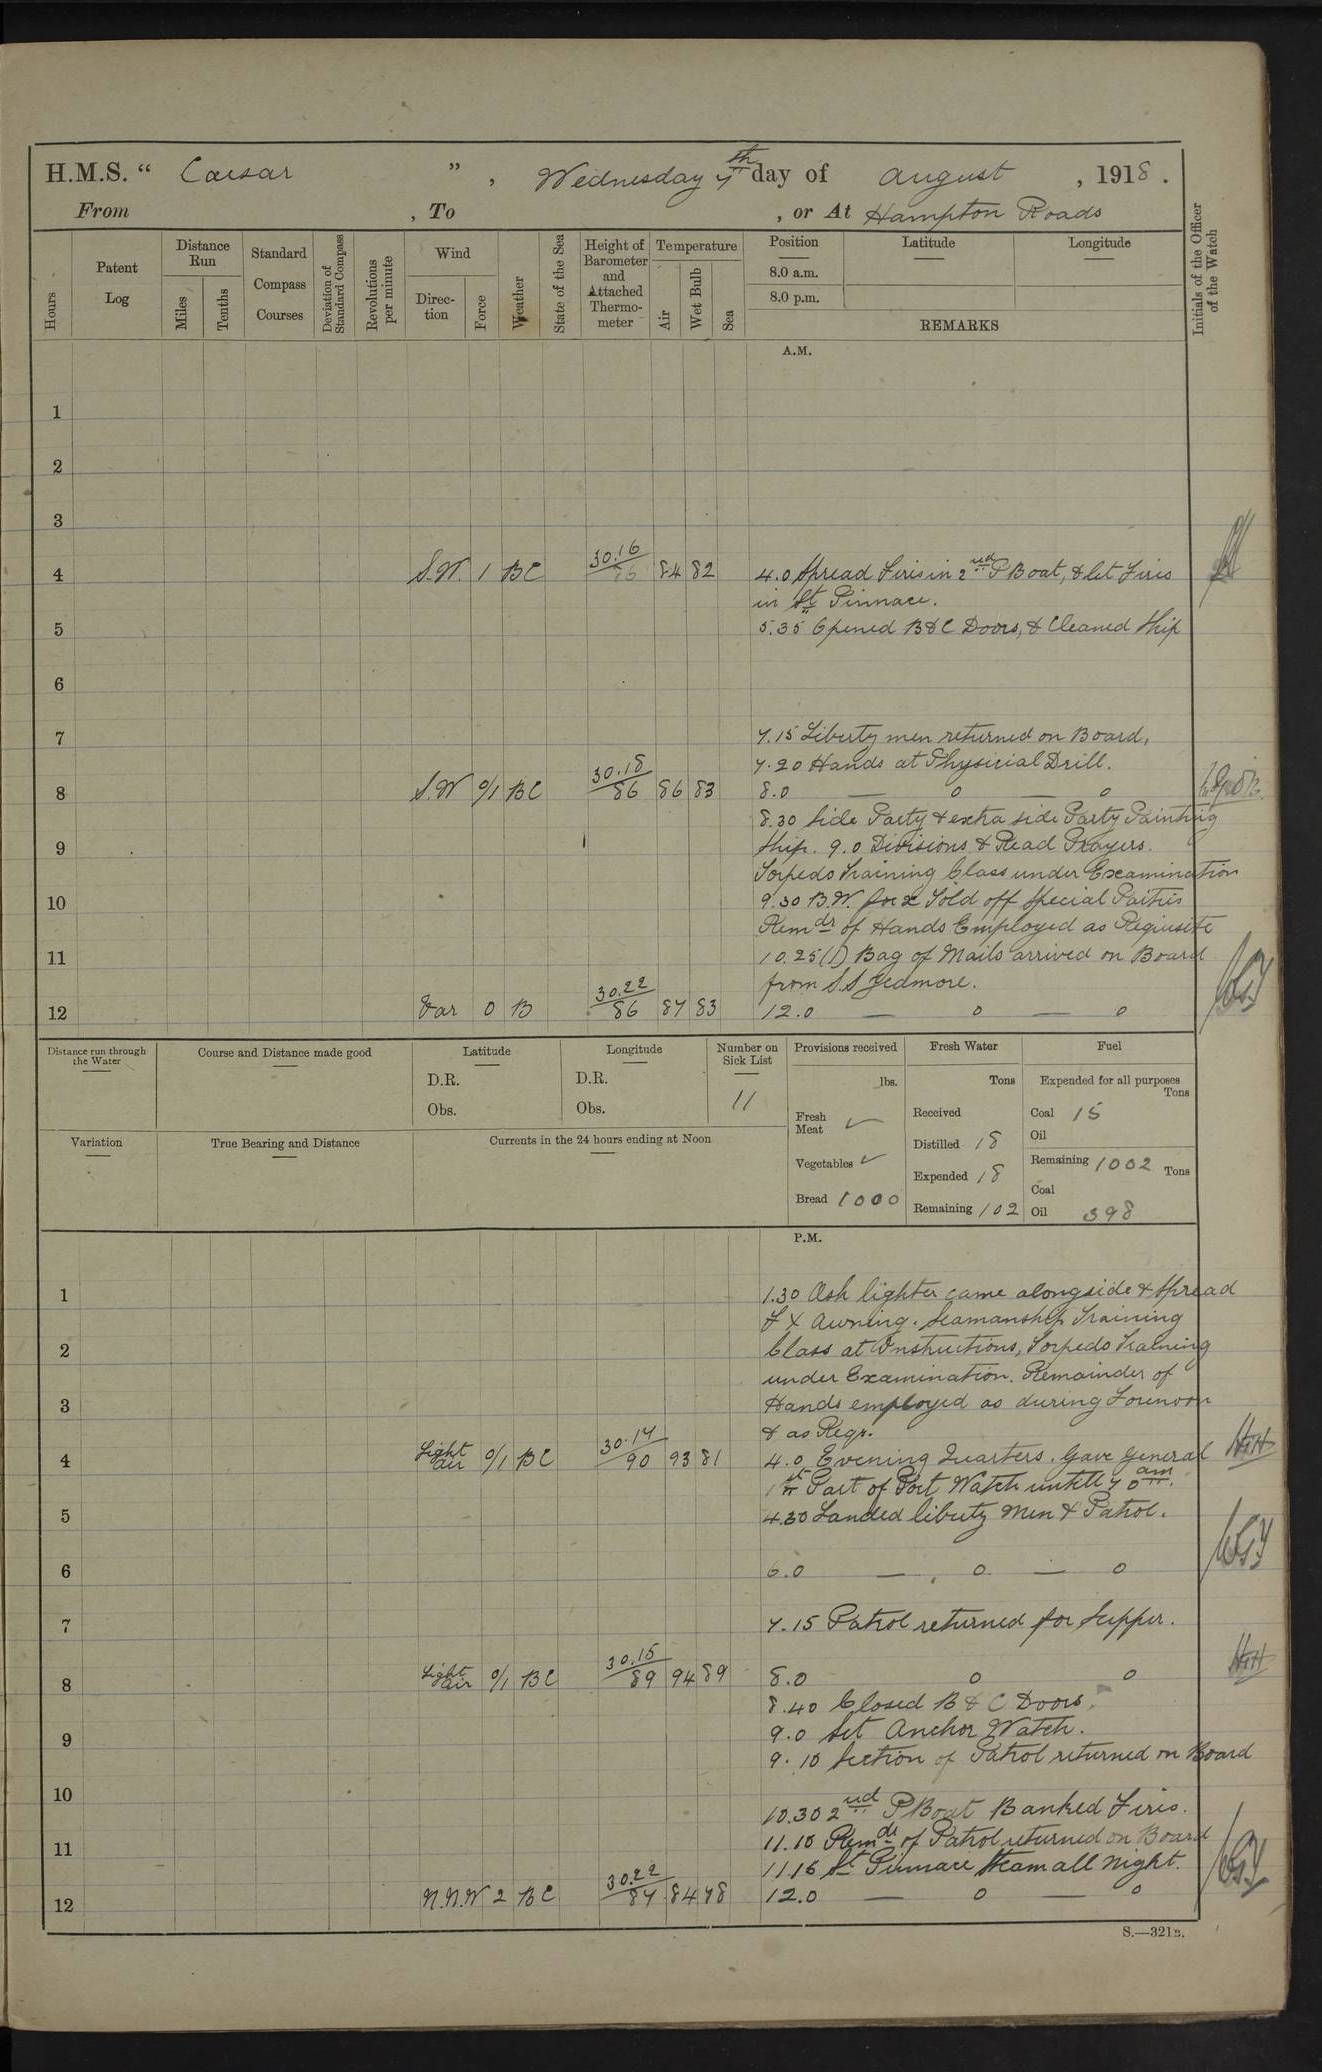 H.M.S. “ Caesar ” , Wednesday 7th day of August , 1918 .
From , To , or At Hampton Roads
Hours
Patent Log
Distance Run
Miles
Tenths
Standard Compass Courses
Deviation of Standard Compass
Revolutions per minute
Wind
Direction
Force
Weather
State of the Sea
Height of Barometer and Attached Thermometer
Temperature
Air
Wet Bulb
Sea
Position
8.0 a.m.
8.0 p.m.
Latitude
Longitude
REMARKS
Initials of the Officer of the Watch
A.M.
1
2
3
4 S.W. 1 BC 30.16 86 84 82 4.0 Spread Fires in 2nd P Boat, & let Fires
in St Pinnace.
5 5.35 Opened B&C Doors, & Cleaned Ship
6
7 7.15 Liberty men returned on Board,
7.20 Hands at Physicial Drill.
8 S.W 0/1 BC 30.18 86 86 83 8.0 — o — o
8.30 Side Party & extra side Party Painting
9 Ship. 9.0 Divisions & Read Prayers.
Torpedo Training Class under Examination
10 9.30 B.W. for x Told off Special Parties
Remdr of Hands Employed as Requisite
11 10.25 (1) Bag of Mails arrived on Board
from S.S Jedmore.
12 Var 0 B 30.22 86 87 83 12.0 — o — o
Distance run through the Water
Course and Distance made good
Latitude
D.R.
Obs.
Longitude
D.R.
Obs.
Number on Sick List
11
Provisions received
lbs.
Fresh Meat ✓
Vegetables ✓
Bread 1000
Fresh Water
Tons
Received
Distilled 18
Expended 18
Remaining 102
Fuel
Expended for all purposes
Tons
Coal 15
Oil
Remaining 1002 Tons
Coal
Oil 398
Variation
True Bearing and Distance
Currents in the 24 hours ending at Noon
P.M.
1 1.30 Ash lighter came alongside & Spread
F X Awning. Seamanship Training
2 Class at Instructions, Torpedo Training
under Examination. Remainder of
3 Hands employed as during Forenoon
& as Reqr.
4 Light air 0/1 BC 30.14 90 93 81 4.0 Evening Quarters. Gave General
1st Part of Port Watch untill 7 0 am.
5 4.30 Landed liberty Men & Patrol.
6 6.0 — o — o
7 7.15 Patrol returned for Supper.
8 Light air 0/1 BC 30.15 89 94 89 8.0 o o
8.40 Closed B & C Doors.
9 9.0 Set Anchor Watch.
9.10 Section of Patrol returned on Board
10 10.30 2nd P Boat Banked Fires.
11 11.10 Remdr of Patrol returned on Board
11 15 St Pinnace Steam all Night.
12 N.N.W 2 BC 30.22 87 84 78 12.0 — o — o
S.—321B.